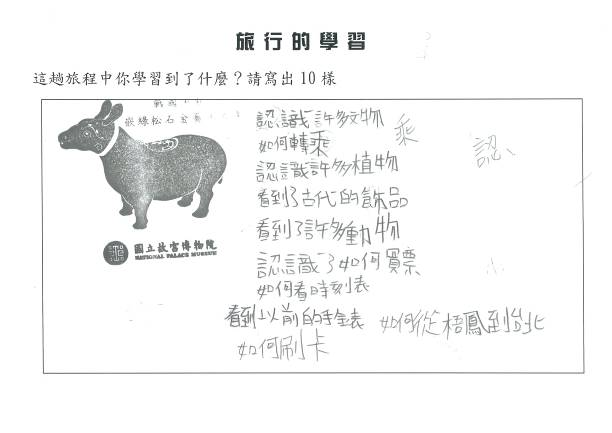 旅行的學習
這趟旅程中你學習到了什麼？請寫出10樣
嵌綠松石金
國立故宮博物院
NATIONAL PALACE MUSEUM
認識許多文物
乘
如何轉乘
認
認識許多植物
看到了古代的飾品
看到了許多動物
認識了如何買票
如何看時刻表
看到以前的手金表
如何從梧鳳到台北
如何刷卡